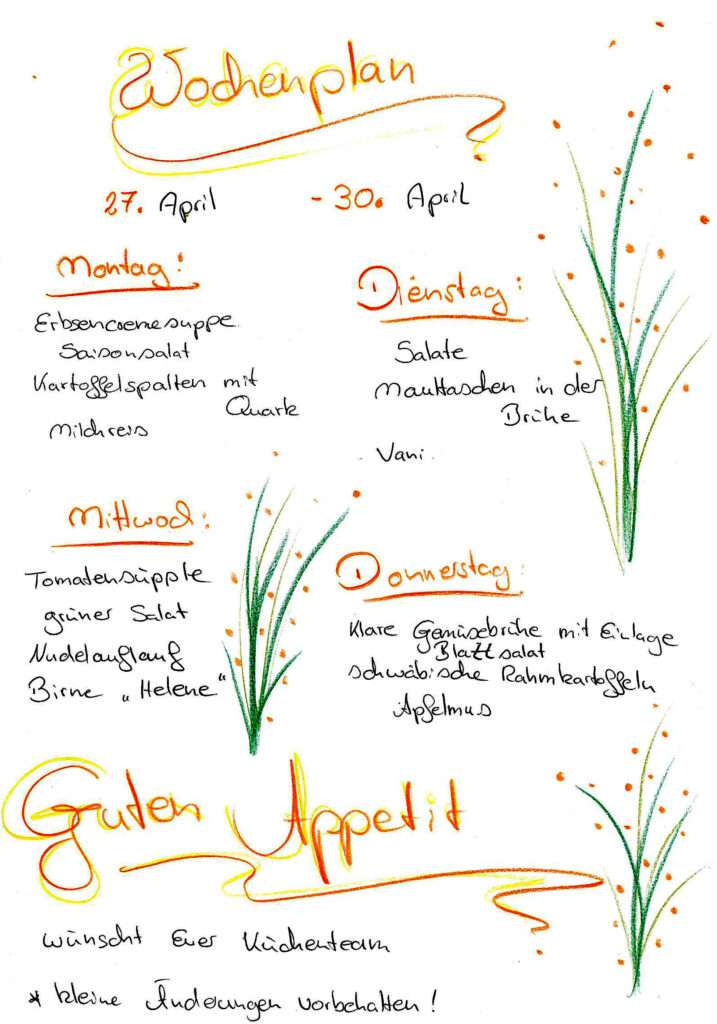 Wochenplan
27. April - 30. April
Montag:
Erbsencremesuppe
Saisonsalat
Kartoffelspalten mit
Quark
Milchreis
Dienstag:
Salate
Maultaschen in der
Brühe
Vani.
Mittwoch:
Tomatensüpple
grüner Salat
Nudelauflauf
Birne „Helene“
Donnerstag:
Klare Gemüsebrühe mit Einlage
Blattsalat
schwäbische Rahmkartoffeln
Apfelmus
Guten Appetit
wünscht Euer Küchenteam
* kleine Änderungen vorbehalten!